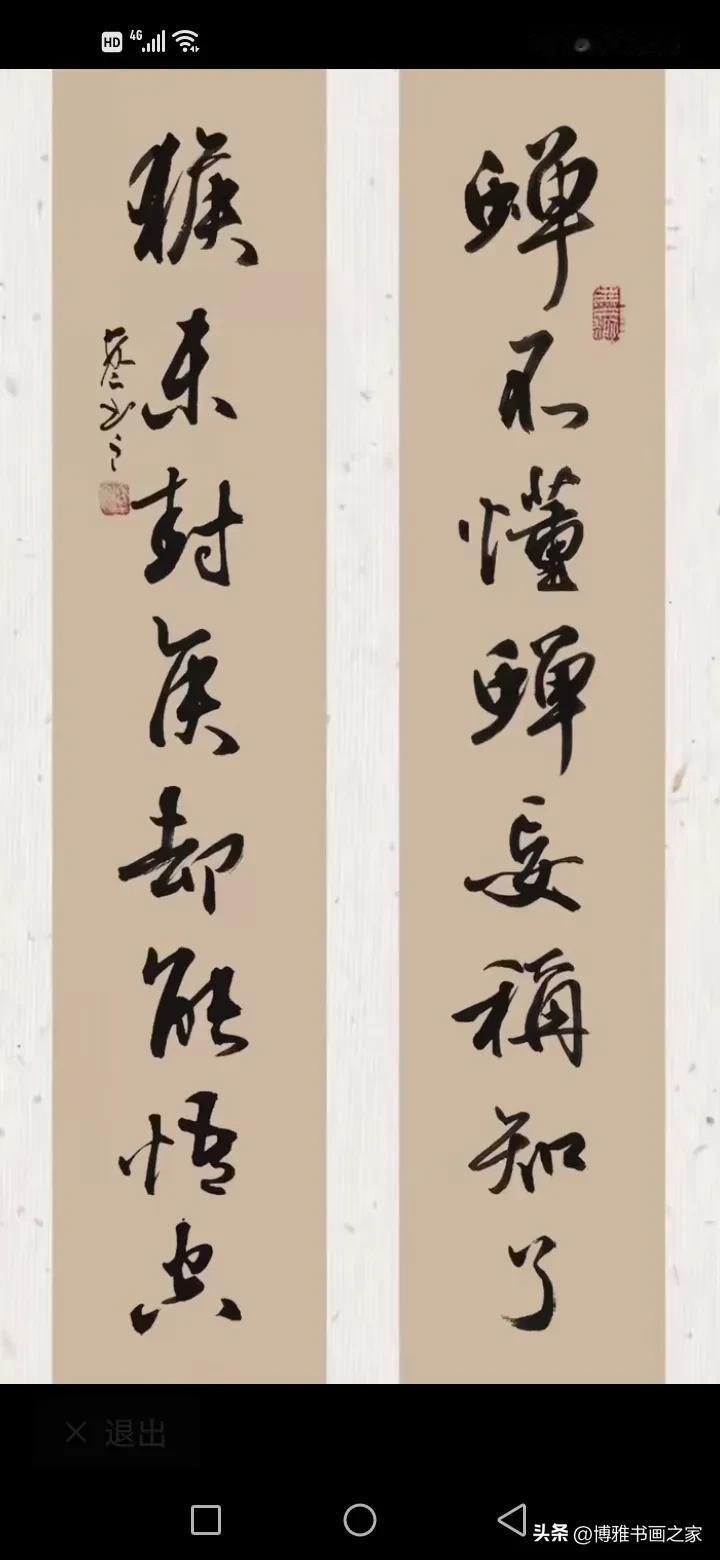 HD 4G
蝉不懂蝉妄稱知了
猴未封侯却能悟空
× 退出
头条 @博雅书画之家